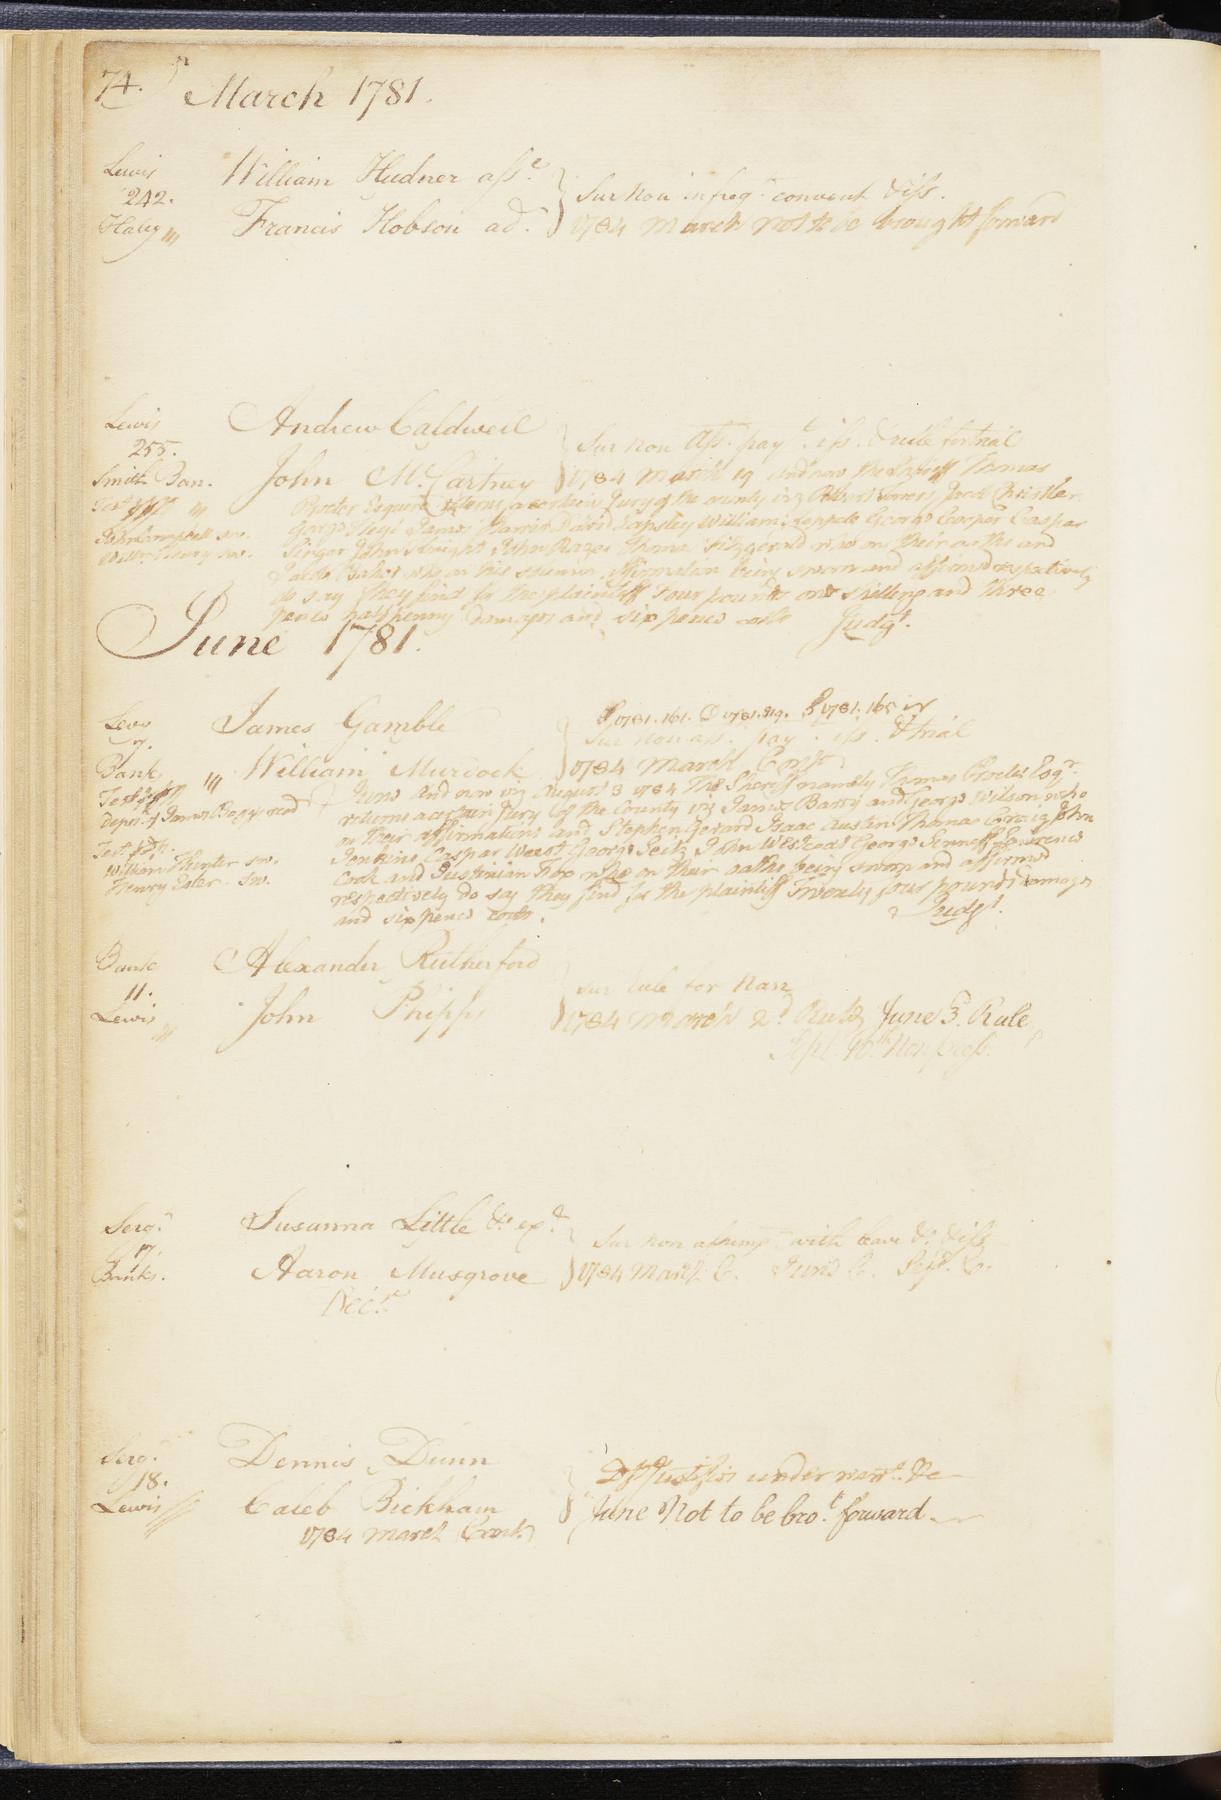 74. March 1781.
Lewis
242.
Haley
William Hudner ass.ee
Francis Hobson ad.
Sur Non infreg.t convent & iss.
1784 March not to be brought forward
Lewis
255.
Smith Ban.
Andrew Caldwell
John McCartney
Sur Non Ass. pay.t iss. & rule for trial
1784 March 19 And now the Sheriff Thomas
Procter Esquire returns a certain Jury of the county viz Robert Towers Jacob Christler
George Heyl James Harris David Lapsley William George Cooper Caspar
Singer John Knight John Thomas Fitzgerald who on their oaths and
Jacob Baker who on his solemn affirmation being sworn and affirmed respectively
do say they find for the plaintiff Four pounds one Shilling and three
pence halfpenny damages and six pence costs Judg.t
John Campbell sw.
sw.
June 1781.
Levy
7.
Bank
James Gamble
William Murdock
S 1781.161. D 1781.319. S 1781.165
Sur Non ass. pay.t iss. & trial
1784 March Cont.d
June And now viz August 3 1784 The Sheriff namely Thomas Procter Esq.r
returns a certain Jury of the County viz James Barry and George Wilson who
on their affirmations and Stephen Gerard Isaac Austin Thomas Craig John
Jenkins Caspar Weest George Seitz John Westcoat George Sennett Lawrence
Cook and Justinian Fox who on their oaths being sworn and affirmed
respectively do say they find for the plaintiff Twenty four pounds Damages
and six pence costs.
Judg.t
Depos.n of James Boggs read
William Thinter sw.
Henry sw.
Bank
11.
Lewis
Alexander Rutherford
John Phipps
Sur rule for Narr
1784 March 2.d Rule June 3.d Rule
Sept. Non pross.
Serg.t
17.
Banks.
Susanna Little &c ex.x
Aaron Musgrove
Dec.d
Sur Non assump.t with leave &c. & iss
1784 March C. June C. Sept. C.
Serg.t
18.
Lewis
Dennis Dunn
Caleb Bickham
1784 March Cont.d
Def.t Justifies under warr.t &c
June Not to be bro.t forward